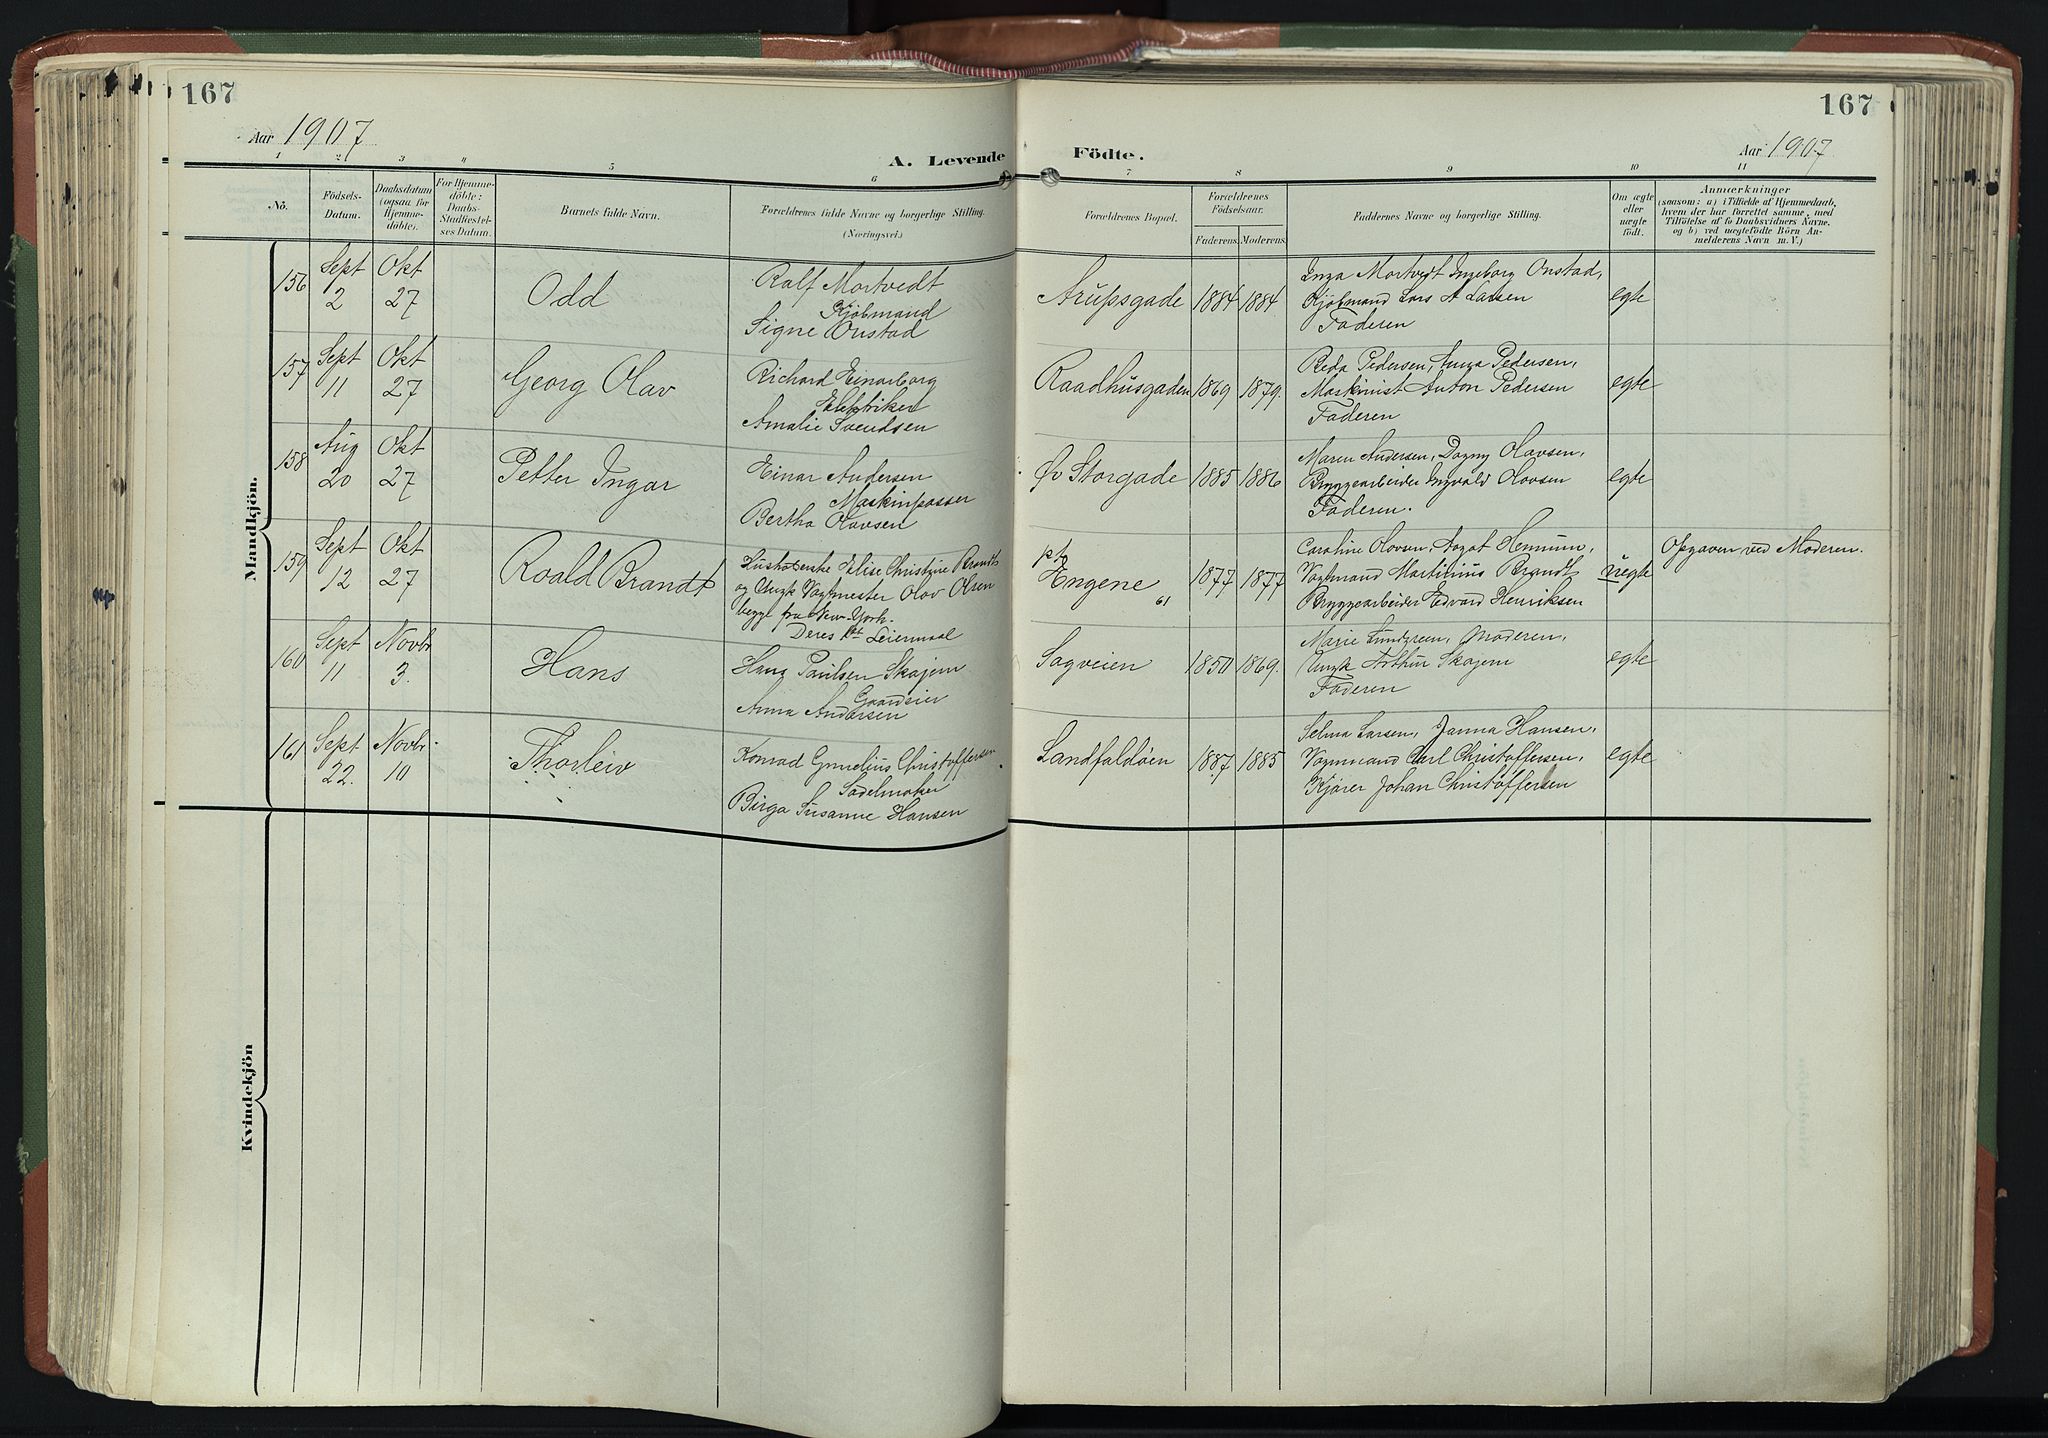 167
167
Aar 1907
A. Levende Födte.
Aar 1907
1 2 3 4 5 6 7 8 9 10 11
Nö.
Födsels-
Datum.
Daabsdatum
(ogsaa for
Hjemme-
döbte).
For Hjemme-
döbte:
Daabs-
Stadfæstel-
ses Datum.
Barnets fulde Navn.
Forældrenes fulde Navne og borgerlige Stilling.
(Næringsvei.)
Forældrenes Bopæl.
Forældrenes
Födselsaar.
Faderens. Moderens.
Faddernes Navne og borgerlige Stilling.
Om ægte
eller
uægte
födt.
Anmærkninger
(saasom: a) i Tilfælde af Hjemmedaab,
hvem der har forrettet samme, med
Tilföielse af to Daabsvidners Navne,
og b) ved uægtefödte Börn An-
melderens Navn m. V.)
Mandkjön.
156
Sept
2
Okt
27
Odd
Ralf Mortvedt
Kjöbmand
Signe Onstad
Arupsgade
1884
1884.
Inga Mortvedt Ingeborg Onstad,
Kjöbmand Lars A Larsen
Faderen
egte
157
Sept
11
Okt
27
Georg Olav
Richard Einarborg
Elektriker
Amalie Svendsen
Raadhusgaden
1869
1879.
Pedersen, Pedersen,
Maskinist Anton Pedersen
Faderen
egte
158
Aug
20
Okt
27
Petter Ingar
Einar Andersen
Maskinpasser
Bertha Olavsen
Øv Storgade
1885
1886
Maren Andersen, Dagny Olavsen,
Bryggearbeider Ingvald Olavsen
Faderen.
egte
159
Sept
12
Okt
27
Roald Brandt
Husholderske Elise Christine Brandt
og Ungk Vagtmester Olav Olsen
begge fra New-York.
Deres 1st Leiermaal
pt
Engene 61
1877
1877
Caroline Olavsen, Aagot Hennum,
Vagtmand Martinius Brandt
Bryggearbeider Edvard Henriksen
uegte
Opgaven ved Moderen.
160
Sept
11
Novbr
3.
Hans
Hans Paulsen Skajem
Gaardeier
Anna Andersen
Sagveien
1850
1869.
Marie Lundgreen, Moderen,
Ungk Arthur Skajem
Faderen
egte
161
Sept
22.
Novbr.
10
Thorleiv
Konrad Christoffersen
Sadelmaker
Birga Susanne Hansen
Landfaldöen
1887
1885
Selma Larsen, Janna Hansen,
Vognmand Carl Christoffersen,
Kjörer Johan Christoffersen
egte
Kvindekjön